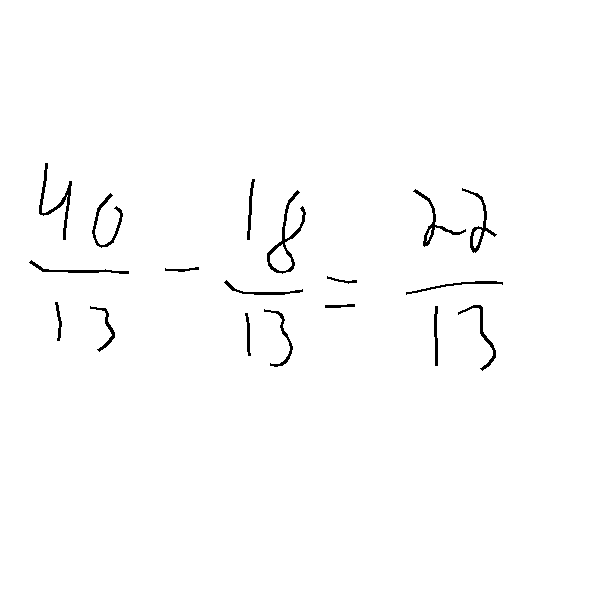 40/13 - 18/13 = 22/13